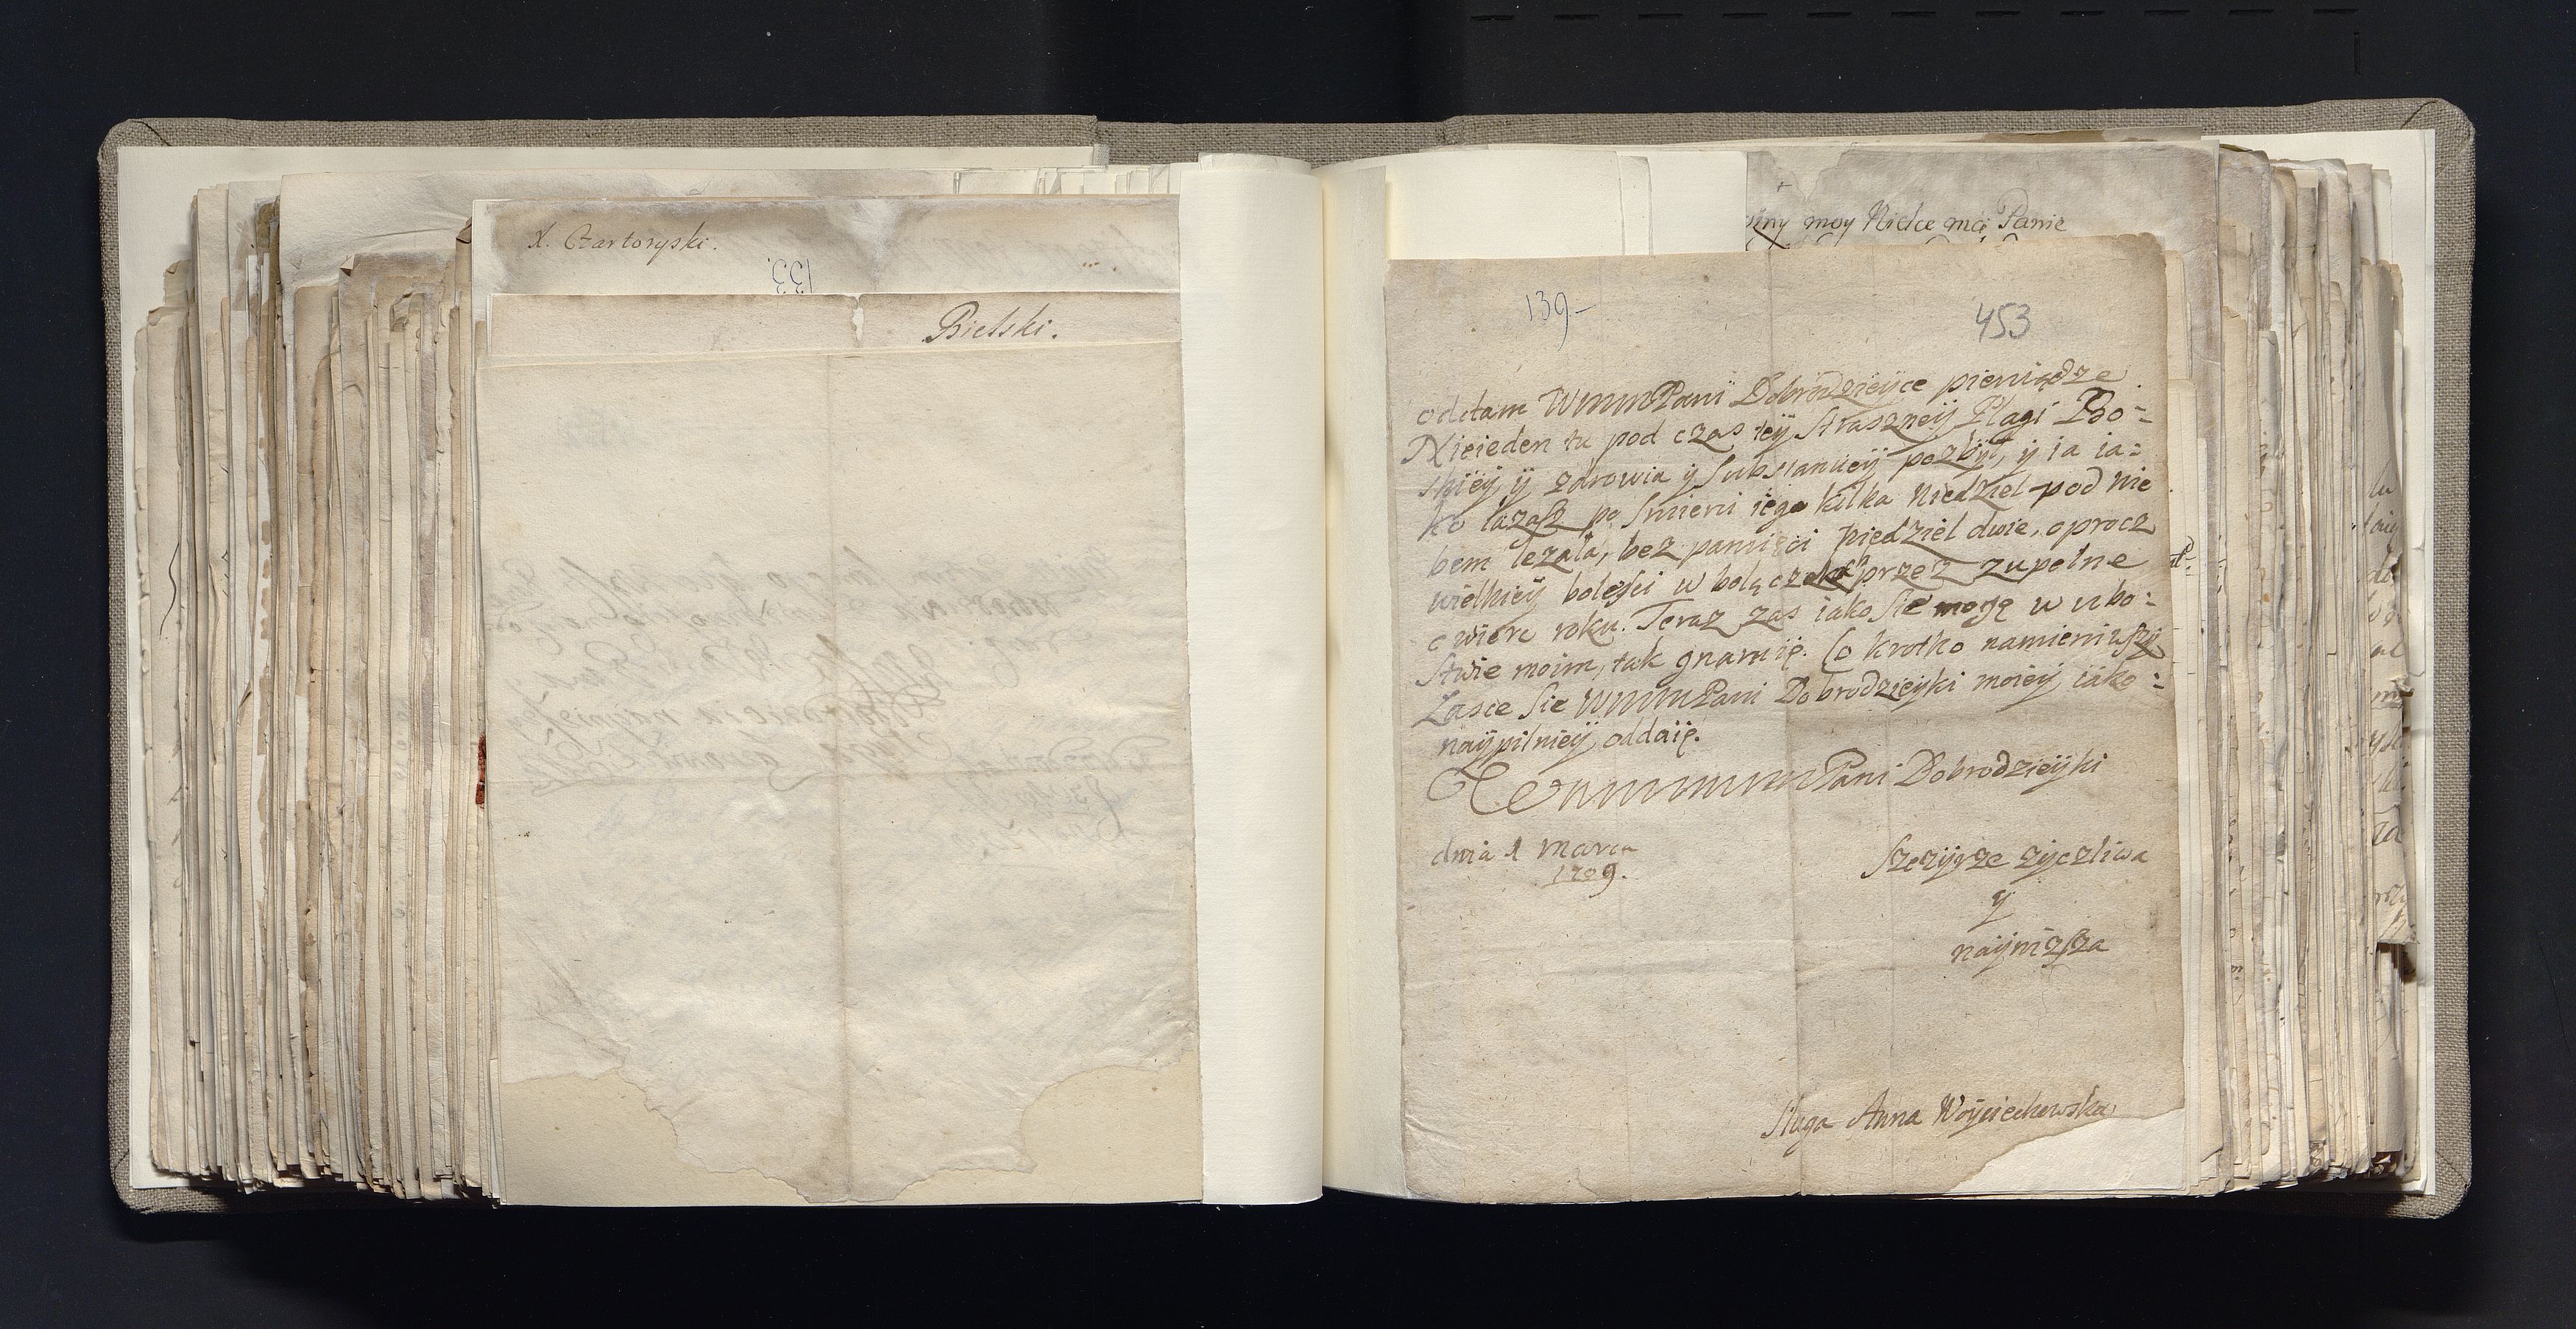 X. Czartoryski.
133.
Bielski.
moy Wielce mci Panie
139
453
oddam WMMMPani Dobrodzieyce pieniądze
Nieieden tu pod czas tey straszney Plagi Bo-
skiey y zdrowia y substantiey pozbył, y ia ia-
ko zaraz po smierci iego kilka Niedziel pod nie
bem lezała, bez pamięci niedziel dwie, oprocz
wielkiey bolesci w bolączkach przez zupełne
cwierc roku. Teraz zas iako sie mogę w ubo-
stwie moim, tak gnamię. Co krotko namieniwszy
Łasce sie WMMMPani Dobrodzieyki moiey iako
naypilniey oddaię.
Pani Dobrodzieyki
dnia 1 marca
1709.
szczyrze zyczliwa
y
naynizsza
sługa Anna Woyciechowska